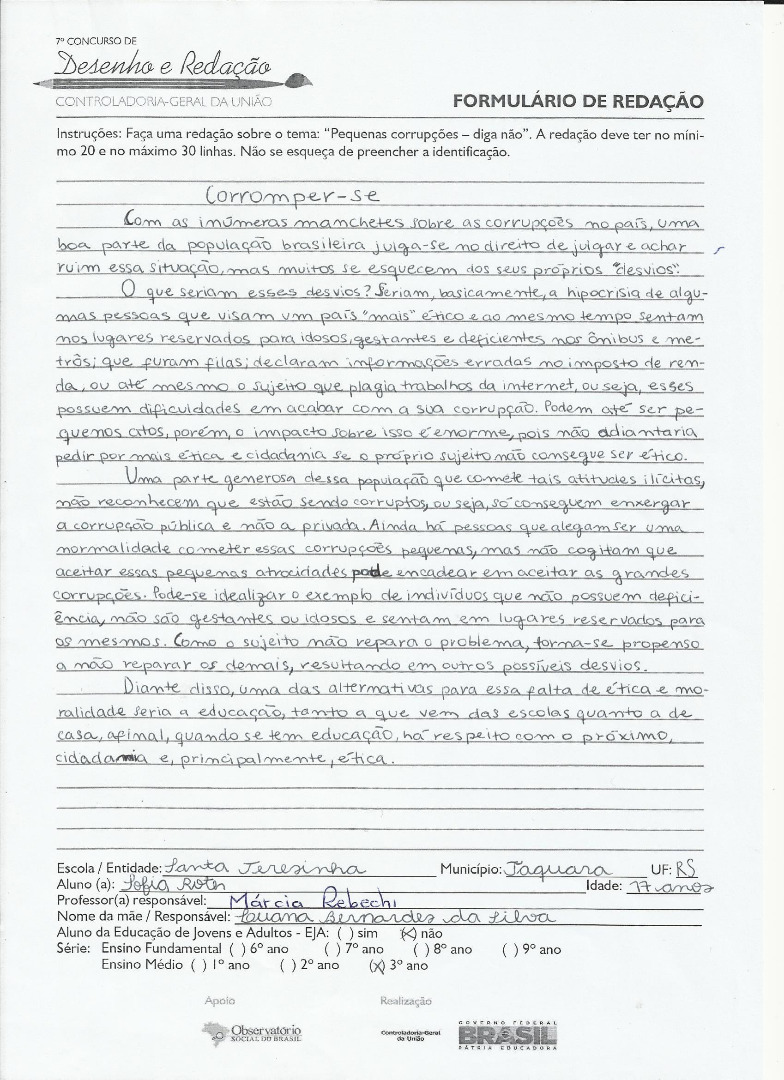 7º CONCURSO DE
Desenho e Redação
CONTROLADORIA-GERAL DA UNIÃO
FORMULÁRIO DE REDAÇÃO
Instruções: Faça uma redação sobre o tema: “Pequenas corrupções – diga não”. A redação deve ter no míni-
mo 20 e no máximo 30 linhas. Não se esqueça de preencher a identificação.
Corromper-se
Com as inúmeras manchetes sobre as corrupções no país, uma
boa parte da população brasileira julga-se no direito de julgar e achar
ruim essa situação, mas muitos se esquecem dos seus próprios "desvios".
O que seriam esses desvios? Seriam, basicamente, a hipocrisia de algu-
mas pessoas que visam um país "mais" ético e ao mesmo tempo sentam
nos lugares reservados para idosos, gestantes e deficientes nos ônibus e me-
trôs; que furam filas; declaram informações erradas no imposto de ren-
da, ou até mesmo o sujeito que plagia trabalhos da internet, ou seja, esses
possuem dificuldades em acabar com a sua corrupção. Podem até ser pe-
quenos atos, porém, o impacto sobre isso é enorme, pois não adiantaria
pedir por mais ética e cidadania se o próprio sujeito não consegue ser ético.
Uma parte generosa dessa população que comete tais atitudes ilícitas,
não reconhecem que estão sendo corruptos, ou seja, só conseguem enxergar
a corrupção pública e não a privada. Ainda há pessoas que alegam ser uma
normalidade cometer essas corrupções pequenas, mas não cogitam que
aceitar essas pequenas atrocidades pode encadear em aceitar as grandes
corrupções. Pode-se idealizar o exemplo de indivíduos que não possuem defici-
ência, não são gestantes ou idosos e sentam em lugares reservados para
os mesmos. Como o sujeito não repara o problema, torna-se propenso
a não reparar os demais, resultando em outros possíveis desvios.
Diante disso, uma das alternativas para essa falta de ética e mo-
ralidade seria a educação, tanto a que vem das escolas quanto a de
casa, afinal, quando se tem educação, há respeito com o próximo,
cidadania e, principalmente, ética.
Escola / Entidade: Santa Teresinha Município: Taquara UF: RS
Aluno (a): Sofia Idade: 17 anos
Professor(a) responsável: Márcia Rebechi
Nome da mãe / Responsável: Luana Bernardes da Silva
Aluno da Educação de Jovens e Adultos - EJA: ( ) sim (x) não
Série: Ensino Fundamental ( ) 6º ano ( ) 7º ano ( ) 8º ano ( ) 9º ano
Ensino Médio ( ) 1º ano ( ) 2º ano (x) 3º ano
Apoio Realização
Observatório SOCIAL DO BRASIL
Controladoria-Geral da União
GOVERNO FEDERAL
BRASIL
PÁTRIA EDUCADORA